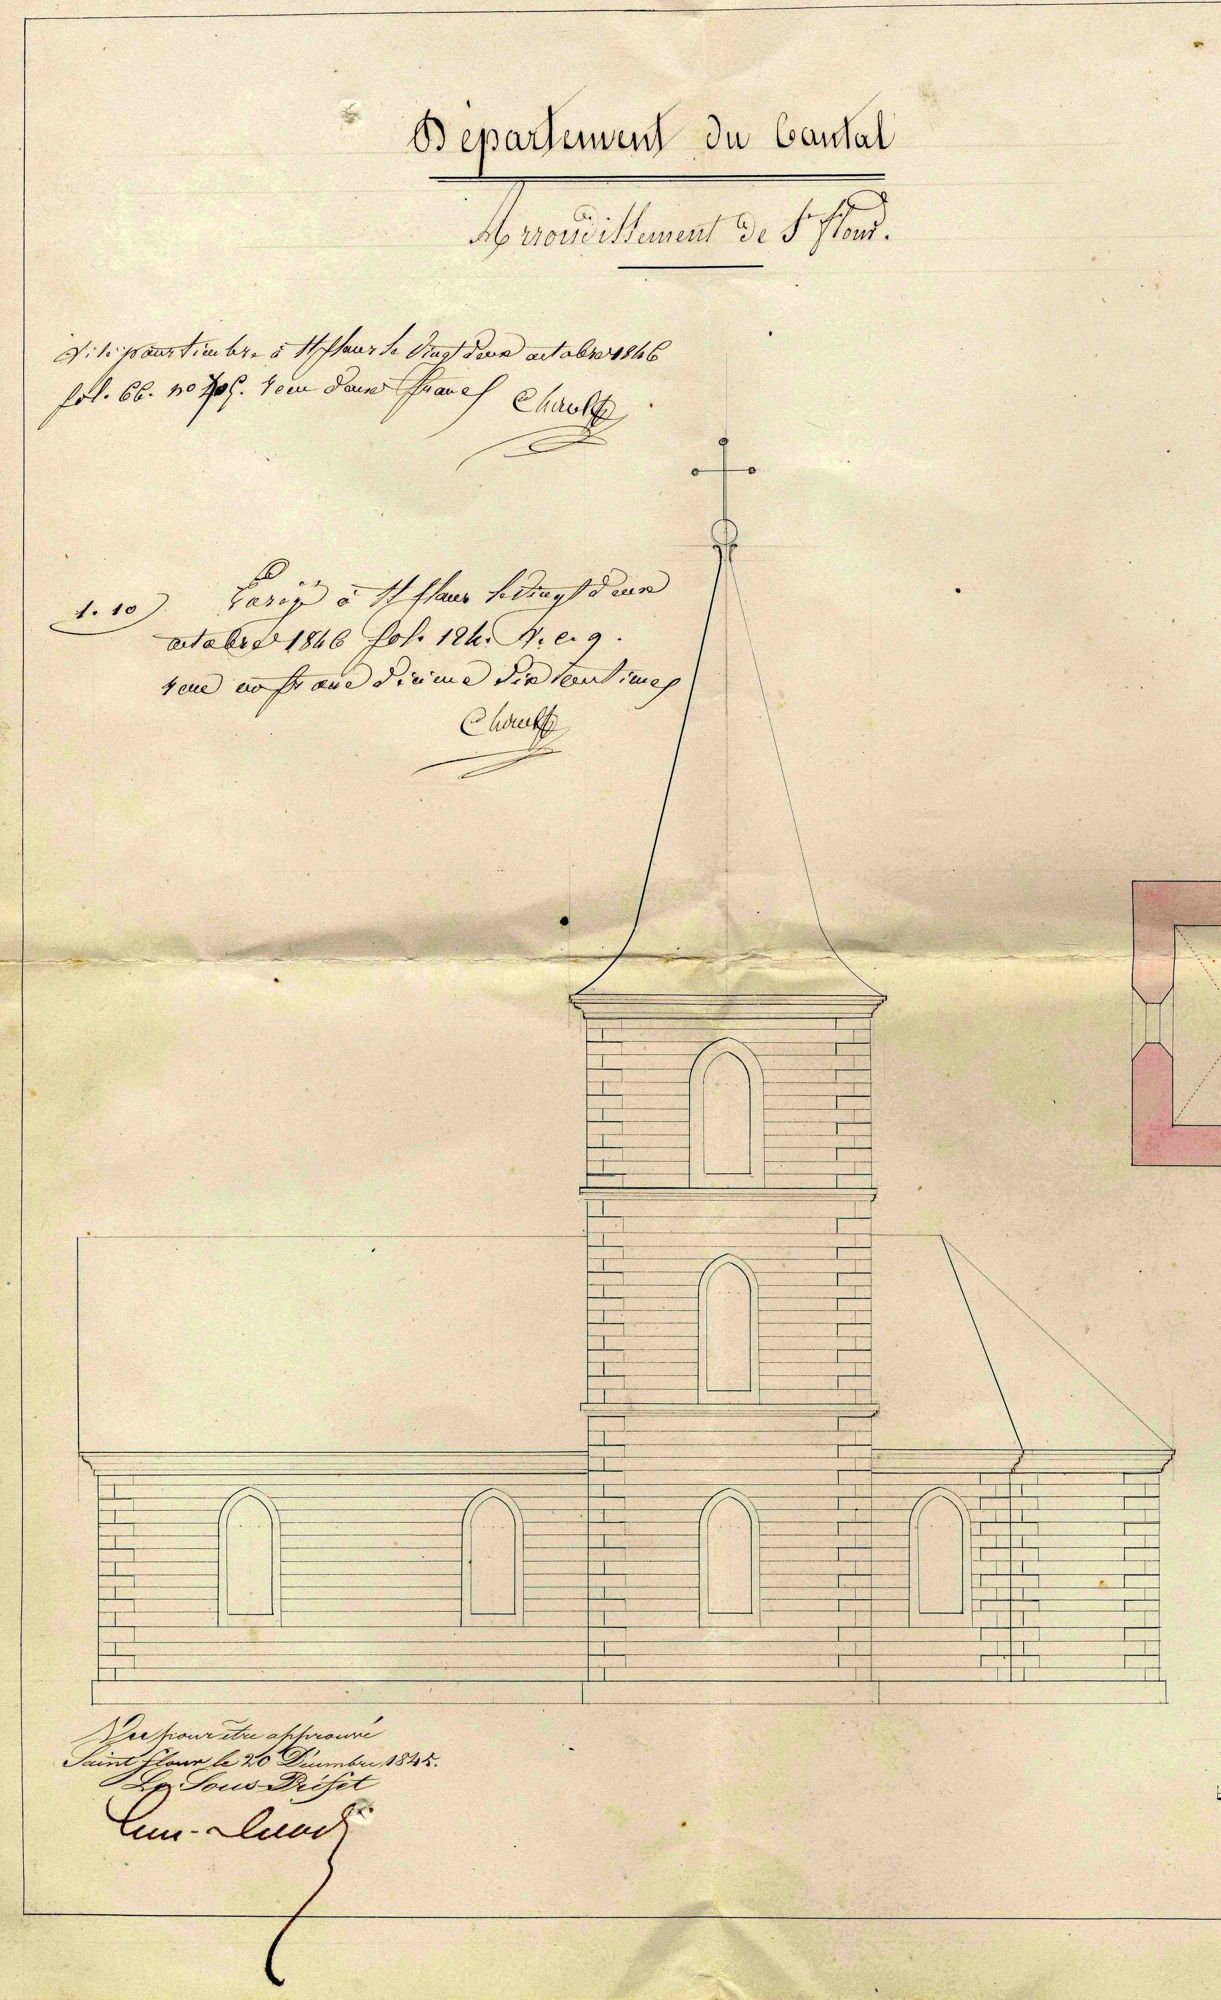 Département du Cantal
Arrondissement de St flour.
Visé pour timbre à St flour le vingt deux octobre 1846
fol. 66. no reçu deux francs
1. 10
à St flour le vingt deux
octobre 1846 fol. 124. V. c. 9.
reçu un franc dixime dix centimes
Vu pour être approuvé
Saint flour le 20 Décembre 1845.
Le Sous-Préfet